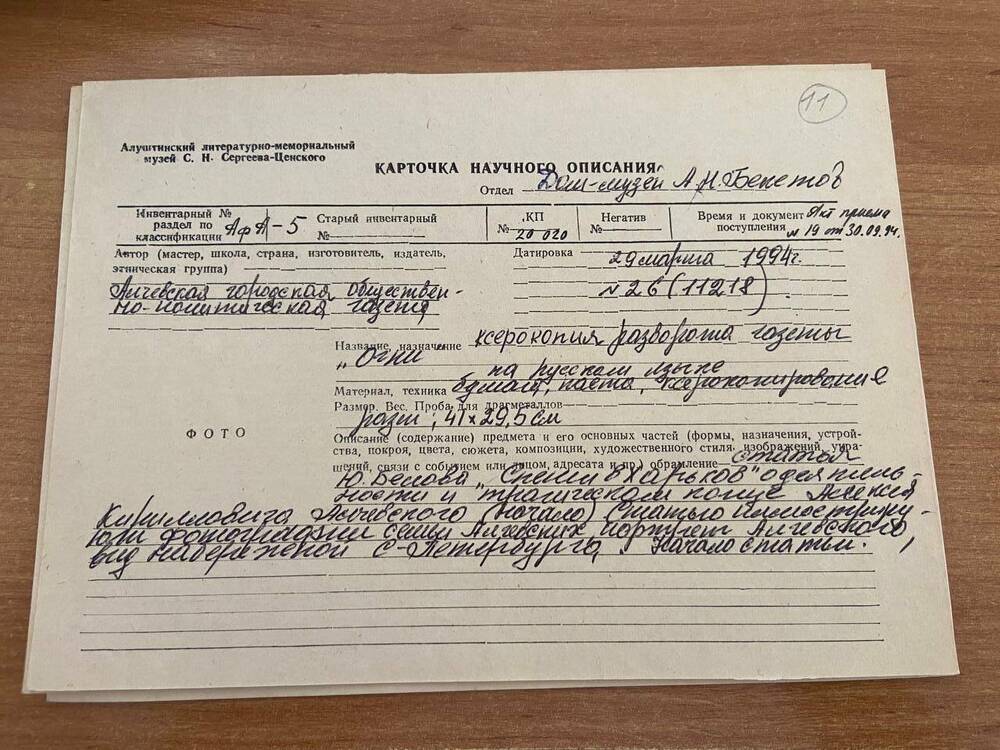 11
Алуштинский литературно-мемориальный
музей С. Н. Сергеева-Ценского
КАРТОЧКА НАУЧНОГО ОПИСАНИЯ
Отдел Дом-музей А.Н. Бекетов
Инвентарный № раздел по классификации АфА-5
Старый инвентарный №
КП № 20 020
Негатив №
Время и документ поступления Акт приема № 19 от 30.09.94.
Автор (мастер, школа, страна, изготовитель, издатель,
этническая группа)
Алчевская городская обществен-
но-политическая газета
Датировка 29 марта 1994 г.
№ 26 (11218)
Название, назначение ксерокопия разворота газеты
„Огни" на русском языке
Материал, техника бумага, паста, ксерокопирование
Размер. Вес. Проба для драгметаллов
разм; 41 х 29,5 см
ФОТО
Описание (содержание) предмета и его основных частей (формы, назначения, устрой-
ства, покроя, цвета, сюжета, композиции, художественного стиля, изображений, укра-
шений, связи с событием или лицом, адресата и пр.) обрамление статья
Ю. Белова „Спеши в Харьков" о деятель-
ности и трагическом конце Алексея
Кирилловича Алчевского (начало) Статью иллюстриру-
ют фотографии семьи Алчевских портрет Алчевского,
вид набережной С-Петербурга, Начало статьи.